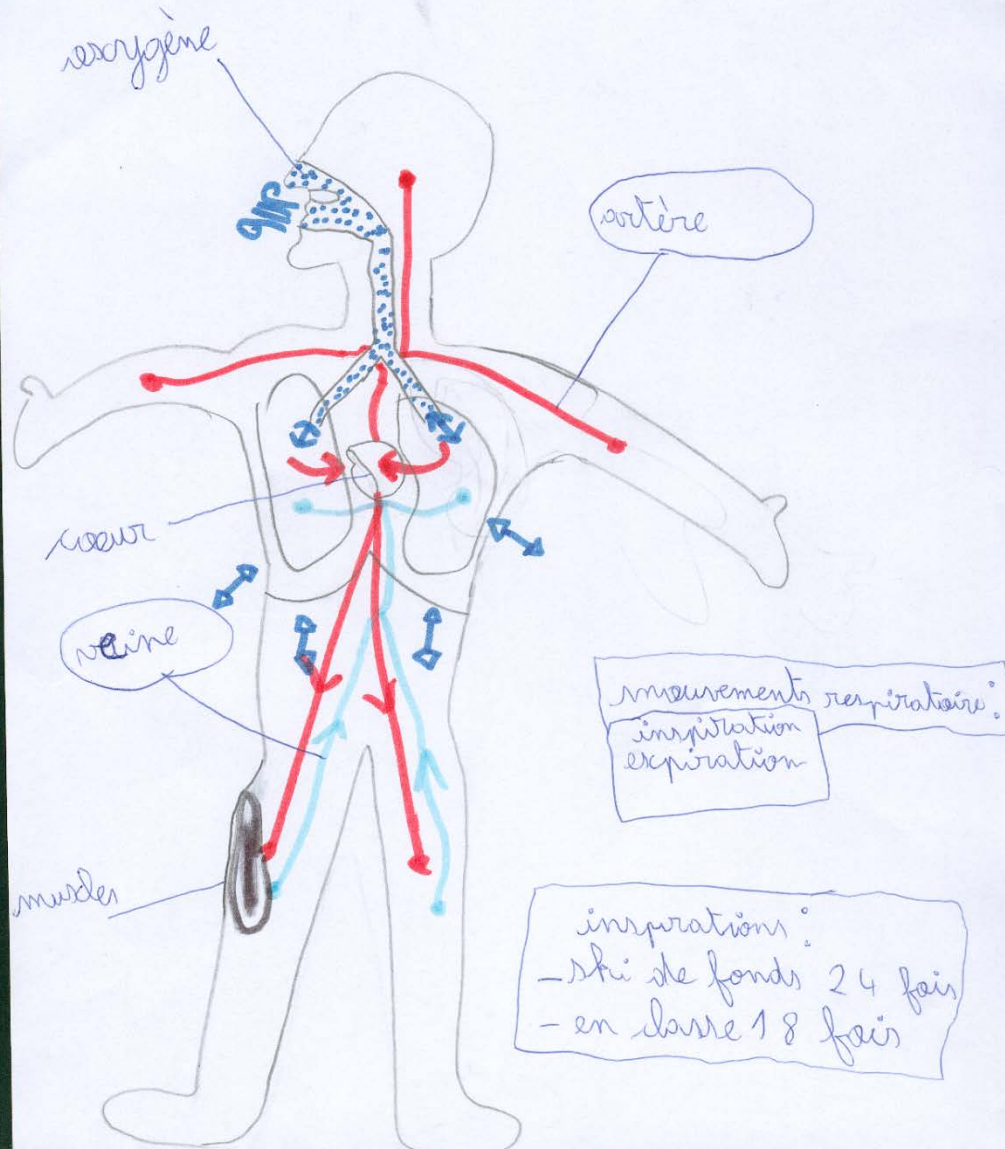 oxygène
artère
coeur
veine
mouvements respiratoire :
inspiration
expiration
muscles
inspirations :
- ski de fonds 24 fois
- en classe 18 fois